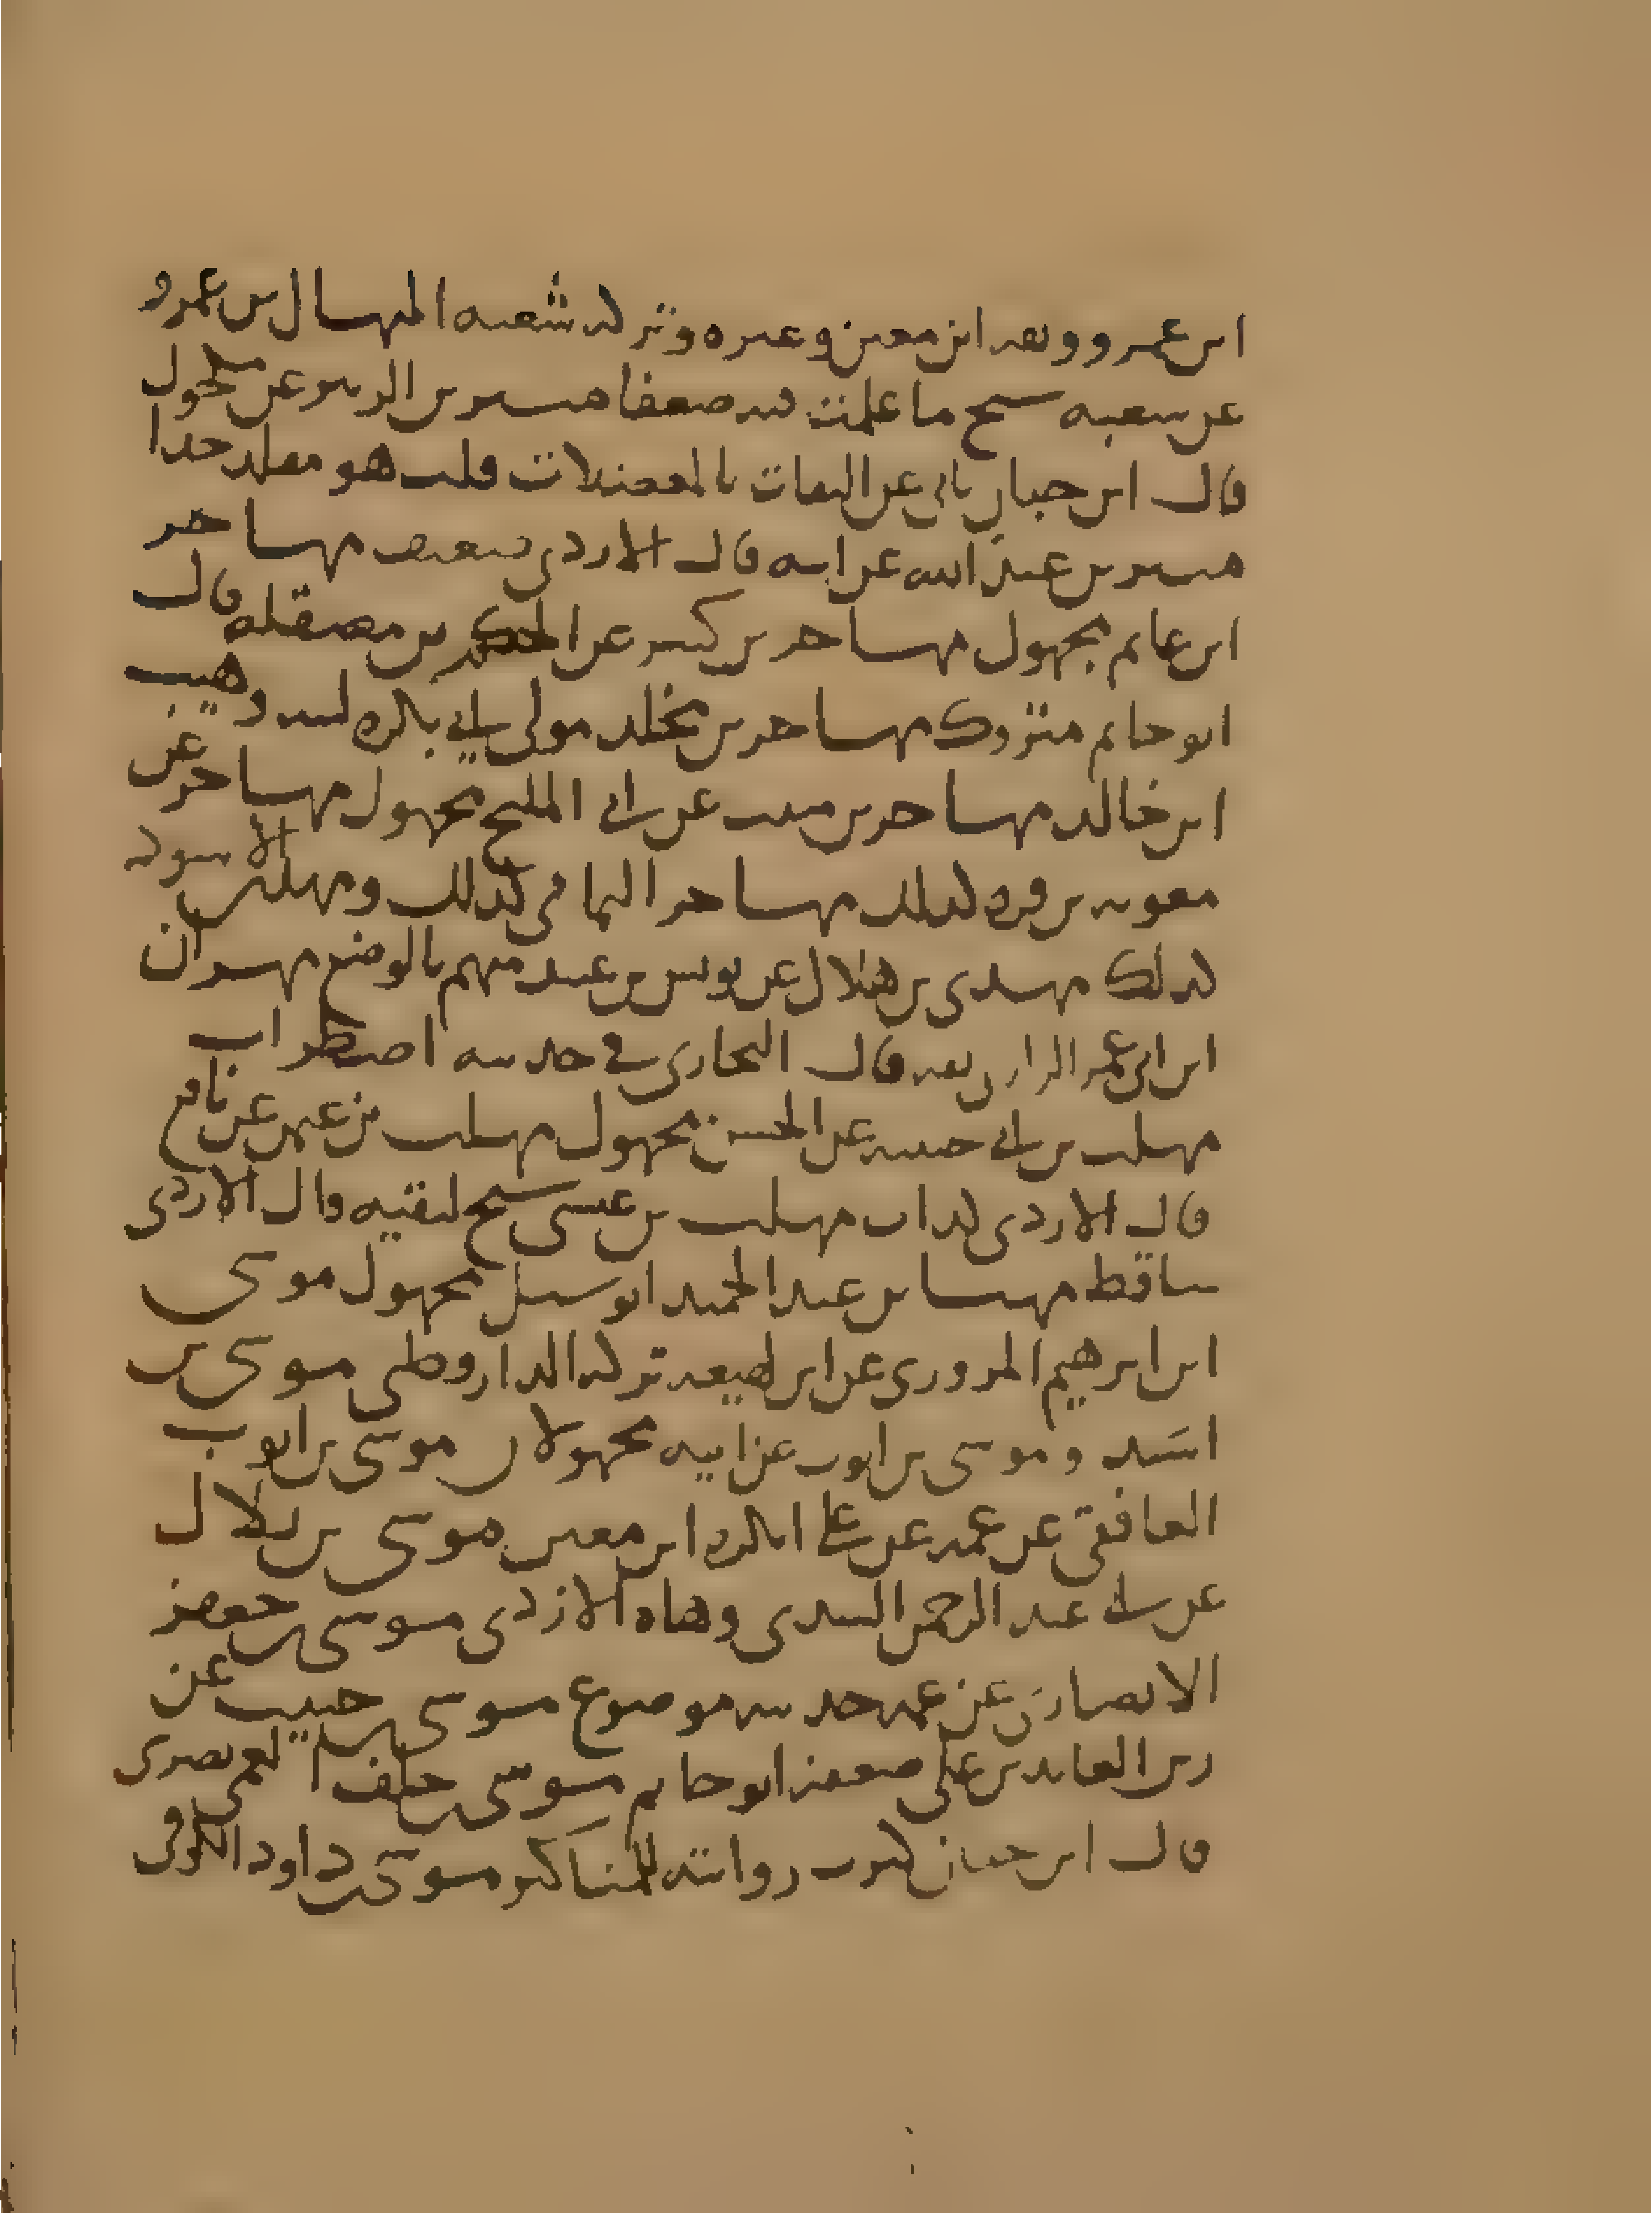 ابن عمرو وثقه ابن معين وغيره وتركه شعبه المنهال بن عمرو
عن شعبه شيخ ما علمت فيه ضعفا منير بن الزبير عن مكحول
قال ابن حبان ياتى عن الثقات بالمعضلات قلت هو مقل جدا
منير بن عبد الله عن ابيه قال الازدى ضعيف مهاجر
ابن غانم مجهول مهاجر بن كثير عن الحكم بن مصقله قال
ابو حاتم متروك مهاجر بن مخلد مولى ابي بكره لينه وهيب
ابن خالد مهاجر بن منيب عن ابي المليح مجهول مهاجر عن
معويه بن قره كذلك مهاجر اليمامى كذلك ومهدى بن الاسود
كذلك مهدى بن هلال عن يونس بن عبيد متهم بالوضع مهران
ابن ابى عمر الرازى ثقه قال البخارى في حديثه اضطراب
مهلب بن ابي حبيبه عن الحسن مجهول مهلب بن عن نافع
قال الازدى كذاب مهلب بن عيسى شيخ لبقيه قال الازدى
ساقط مهنا بن عبد الحميد ابو سهل مجهول موسى
ابن ابرهيم المروزى عن ابن لهيعه تركه الدارقطنى موسى بن
اسيد وموسى بن ايوب عن ابيه مجهولان موسى بن ايوب
الغافقى عن عمه عن علي انكره ابن معين موسى بن بلال
عن ابي عبد الرحمن السدى وهاه الازدى موسى بن جعفر
الانصارى عن عمه حديثه موضوع موسى بن حبيب عن
زين العابدين على ضعفه ابو حاتم موسى بن خلف العمى بصرى
قال ابن حبان كثرت روايته للمناكير موسى بن داود الكوفى